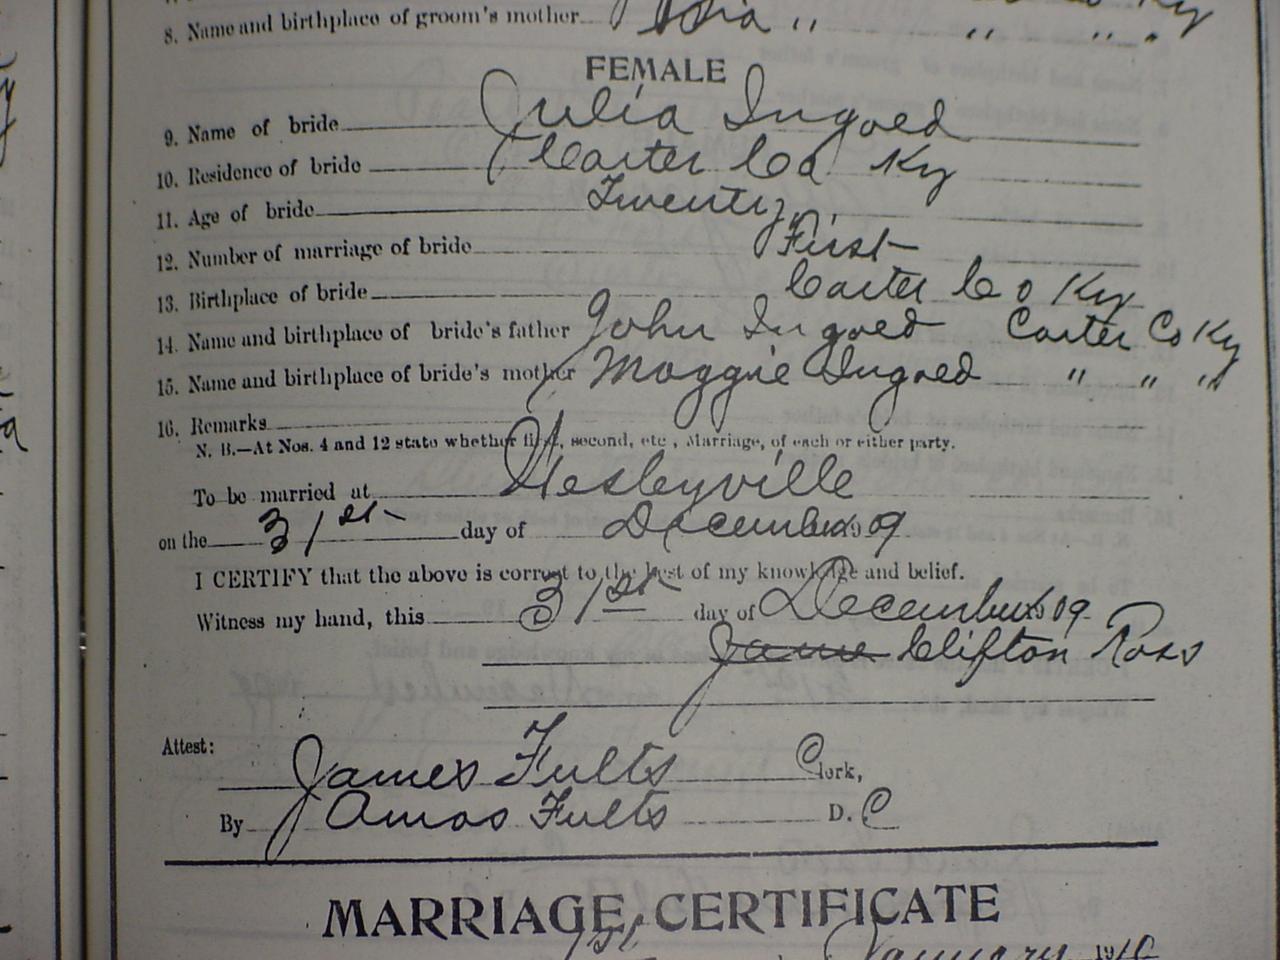 8. Name and birthplace of groom's mother " " "
FEMALE
9. Name of bride Julia Ingoed
10. Residence of bride Carter Co Ky
11. Age of bride Twenty
12. Number of marriage of bride First
13. Birthplace of bride Carter Co Ky
14. Name and birthplace of bride's father John Ingoed Carter Co Ky
15. Name and birthplace of bride's mother Maggie Ingoed " " "
16. Remarks
N. B.—At Nos. 4 and 12 state whether first, second, etc., Marriage, of each or either party.
To be married at Wesleyville
on the 31st day of December 1909
I CERTIFY that the above is correct to the best of my knowledge and belief.
Witness my hand, this 31st day of December 1909
Clifton Ross
Attest:
James Fults Clerk,
By Amos Fults D. C
MARRIAGE CERTIFICATE
January 1910